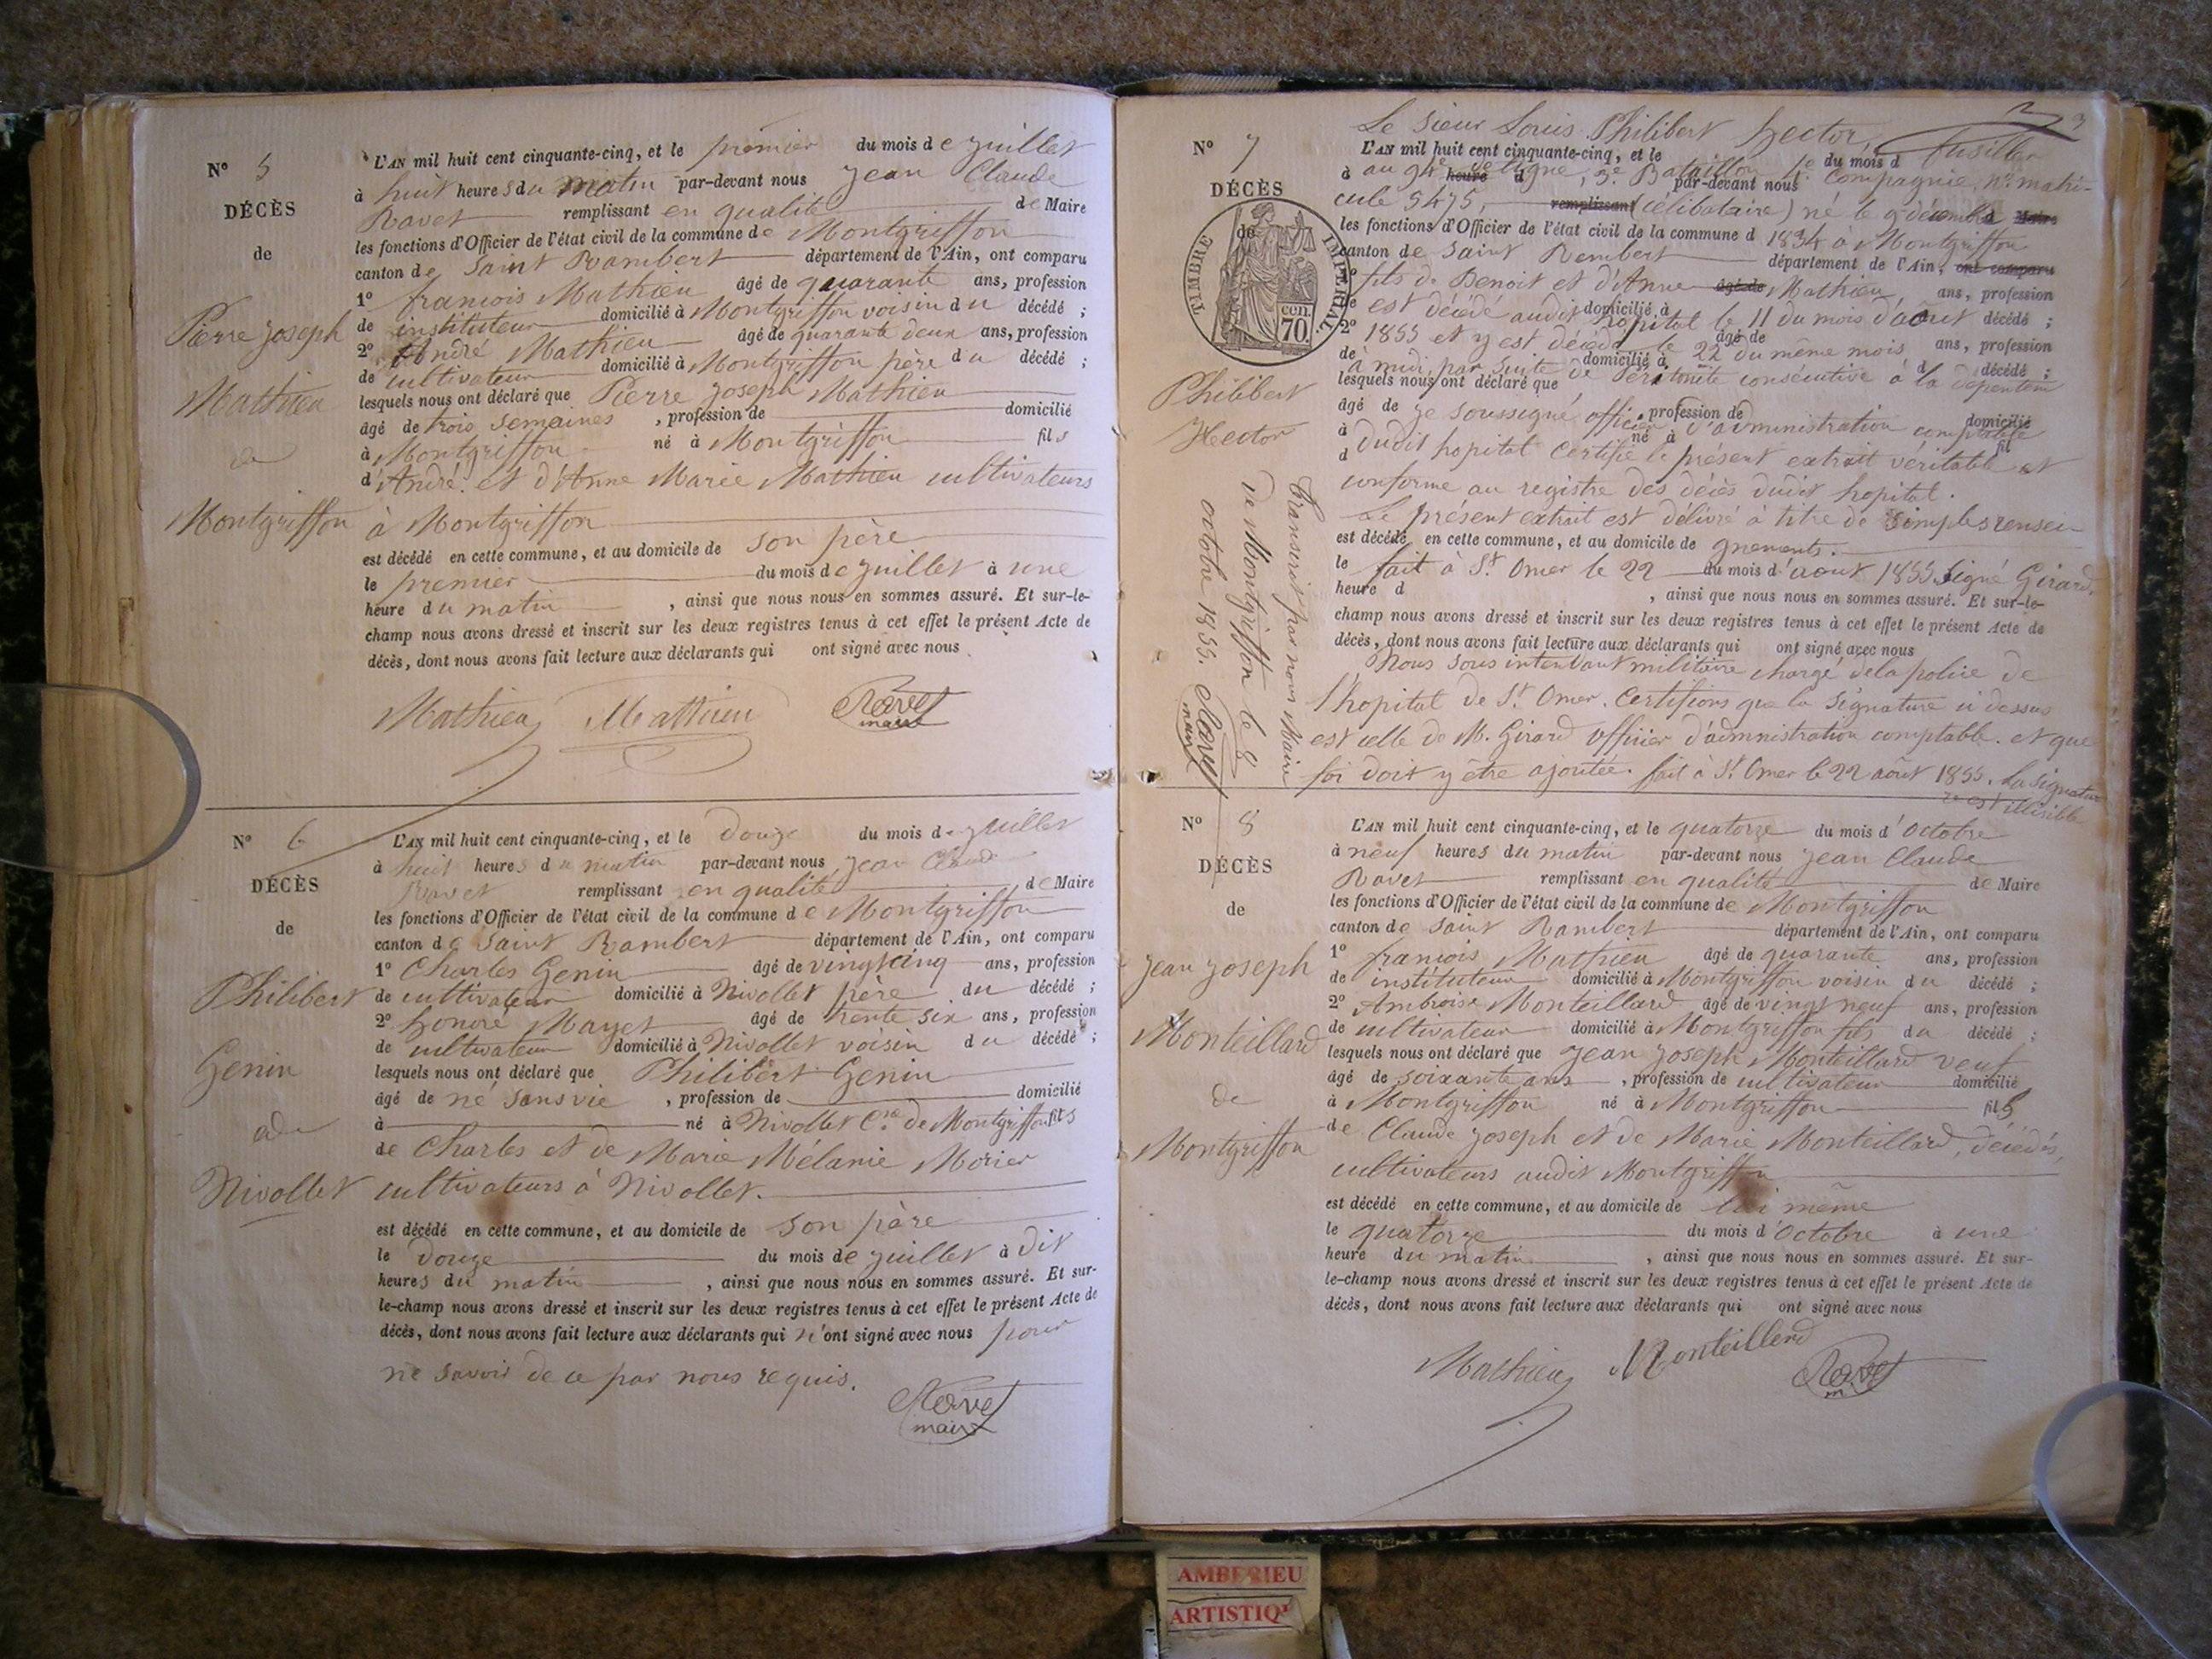 N° 5
DÉCÈS
de
Pierre Joseph
Mathieu
à
Montgriffon
L'AN mil huit cent cinquante-cinq, et le premier du mois de juillet
à huit heures du matin par-devant nous Jean Claude
Ravet remplissant en qualité de Maire
les fonctions d'Officier de l'état civil de la commune de Montgriffon
canton de Saint Rambert département de l'Ain, ont comparu
1° francois Mathieu âgé de quarante ans, profession
de instituteur domicilié à Montgriffon voisin du décédé ;
2° André Mathieu âgé de quarante deux ans, profession
de cultivateur domicilié à Montgriffon père du décédé ;
lesquels nous ont déclaré que Pierre Joseph Mathieu
âgé de trois semaines , profession de domicilié
à Montgriffon né à Montgriffon fils
d'André et d'Anne Marie Mathieu cultivateurs
à Montgriffon
est décédé en cette commune, et au domicile de son père
le premier du mois de juillet à une
heure du matin , ainsi que nous nous en sommes assuré. Et sur-le-
champ nous avons dressé et inscrit sur les deux registres tenus à cet effet le présent Acte de
décès, dont nous avons fait lecture aux déclarants qui ont signé avec nous
Mathieu Mathieu Ravet
maire
N° 6
DÉCÈS
de
Philibert
Genin
de
Nivollet
L'AN mil huit cent cinquante-cinq, et le douze du mois de juillet
à huit heures du matin par-devant nous Jean Claude
Ravet remplissant en qualité de Maire
les fonctions d'Officier de l'état civil de la commune de Montgriffon
canton de Saint Rambert département de l'Ain, ont comparu
1° Charles Genin âgé de vingt cinq ans, profession
de cultivateur domicilié à Nivollet père du décédé ;
2° honoré Mayet âgé de trente six ans, profession
de cultivateur domicilié à Nivollet voisin du décédé ;
lesquels nous ont déclaré que Philibert Genin
âgé de né sans vie , profession de domicilié
à né à Nivollet Cne de Montgriffon fils
de Charles et de Marie Mélanie Morier
cultivateurs à Nivollet.
est décédé en cette commune, et au domicile de son père
le douze du mois de juillet à dit
heures du matin , ainsi que nous nous en sommes assuré. Et sur-
le-champ nous avons dressé et inscrit sur les deux registres tenus à cet effet le présent Acte de
décès, dont nous avons fait lecture aux déclarants qui n'ont signé avec nous pour
ne savoir de ce par nous requis.
Ravet
maire
3
N° 7
DÉCÈS
de
TIMBRE IMPERIAL
70 cen.
Philibert
Hector
Transcrit par nous Maire
de Montgriffon le 8
octobre 1855. Ravet
maire
Le sieur Louis Philibert hector, fusillier
L'AN mil huit cent cinquante-cinq, et le du mois d
à au 94e heure d de ligne, 3e Bataillon par-devant nous 4e Compagnie, n° matri-
cule 5475, remplissant (célibataire) né le 9 décembre Maire
les fonctions d'Officier de l'état civil de la commune d 1834 à Montgriffon
canton de Saint Rembert département de l'Ain, ont comparu
1° fils de Benoit et d'Anne âgé de Mathieu, ans, profession
de est décédé audit domicilié à hopital le 11 du mois d'août décédé ;
2° 1855 et y est décédé le âgé de 22 du même mois ans, profession
de à midi, par suite de domicilié à Péritonite consécutive à la d décédé ;
lesquels nous ont déclaré que
âgé de Je soussigné officier profession de d'administration comptable domicilié
à dudit hopital certifie né à le présent extrait véritable et fil
d conforme au registre des décès dudit hopital.
Le présent extrait est délivré à titre de simples rensei-
est décédé en cette commune, et au domicile de gnements.
le fait à St Omer le 22 du mois d'aout 1855 Signé Girard.
heure d , ainsi que nous nous en sommes assuré. Et sur-le-
champ nous avons dressé et inscrit sur les deux registres tenus à cet effet le présent Acte de
décès, dont nous avons fait lecture aux déclarants qui ont signé avec nous
Nous sous intendant militaire chargé de la police de
l'hopital de St Omer. Certifions que la Signature ci dessus
est celle de M. Girard officier d'administration comptable. et que
foi doit y être ajoutée. fait à St Omer le 22 août 1855. La signatu-
re est illisible
N° 8
DÉCÈS
de
Jean Joseph
Monteillard
de
Montgriffon
L'AN mil huit cent cinquante-cinq, et le quatorze du mois d'Octobre
à neuf heures du matin par-devant nous Jean Claude
Ravet remplissant en qualité de Maire
les fonctions d'Officier de l'état civil de la commune de Montgriffon
canton de Saint Rambert département de l'Ain, ont comparu
1° francois Mathieu âgé de quarante ans, profession
de instituteur domicilié à Montgriffon voisin du décédé ;
2° Ambroise Monteillard âgé de vingt neuf ans, profession
de cultivateur domicilié à Montgriffon fils du décédé ;
lesquels nous ont déclaré que Jean Joseph Monteillard veuf
âgé de soixante ans , profession de cultivateur domicilié
à Montgriffon né à Montgriffon fils
de Claude Joseph et de Marie Monteillard, décédés,
cultivateurs audit Montgriffon
est décédé en cette commune, et au domicile de lui même
le quatorze du mois d'Octobre à une
heure du matin , ainsi que nous nous en sommes assuré. Et sur-
le-champ nous avons dressé et inscrit sur les deux registres tenus à cet effet le présent Acte de
décès, dont nous avons fait lecture aux déclarants qui ont signé avec nous
Mathieu Monteillerd Ravet
m.
AMBERIEU
ARTISTIQU